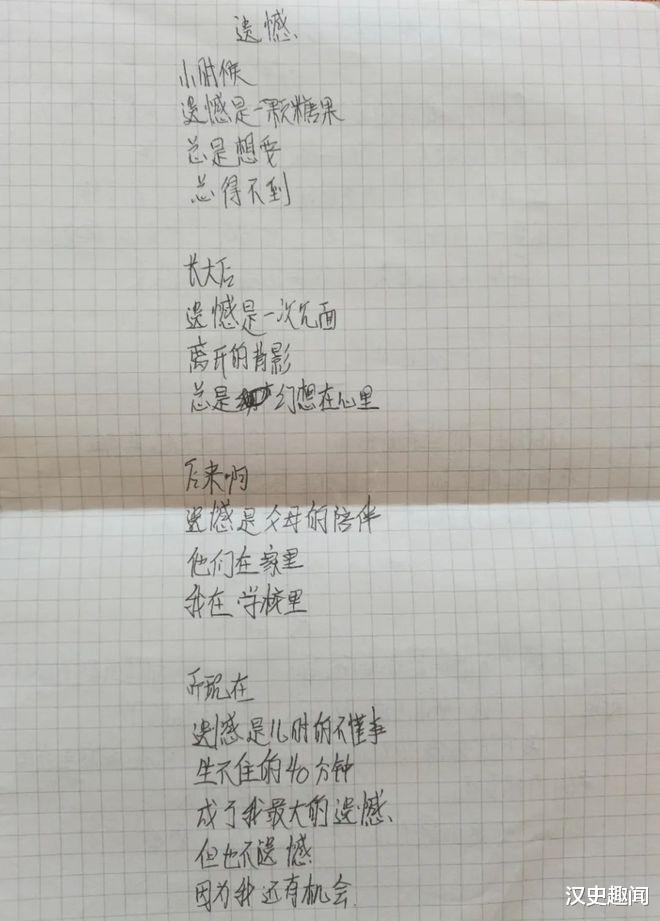 遗憾
小时候
遗憾是一颗糖果
总是想要
总得不到
长大后
遗憾是一次见面
离开的背影
总是幻想在心里
后来啊
遗憾是父母的陪伴
他们在家里
我在学校里
而现在
遗憾是儿时的不懂事
坐不住的40分钟
成了我最大的遗憾
但也不遗憾
因为我还有机会
汉史趣闻